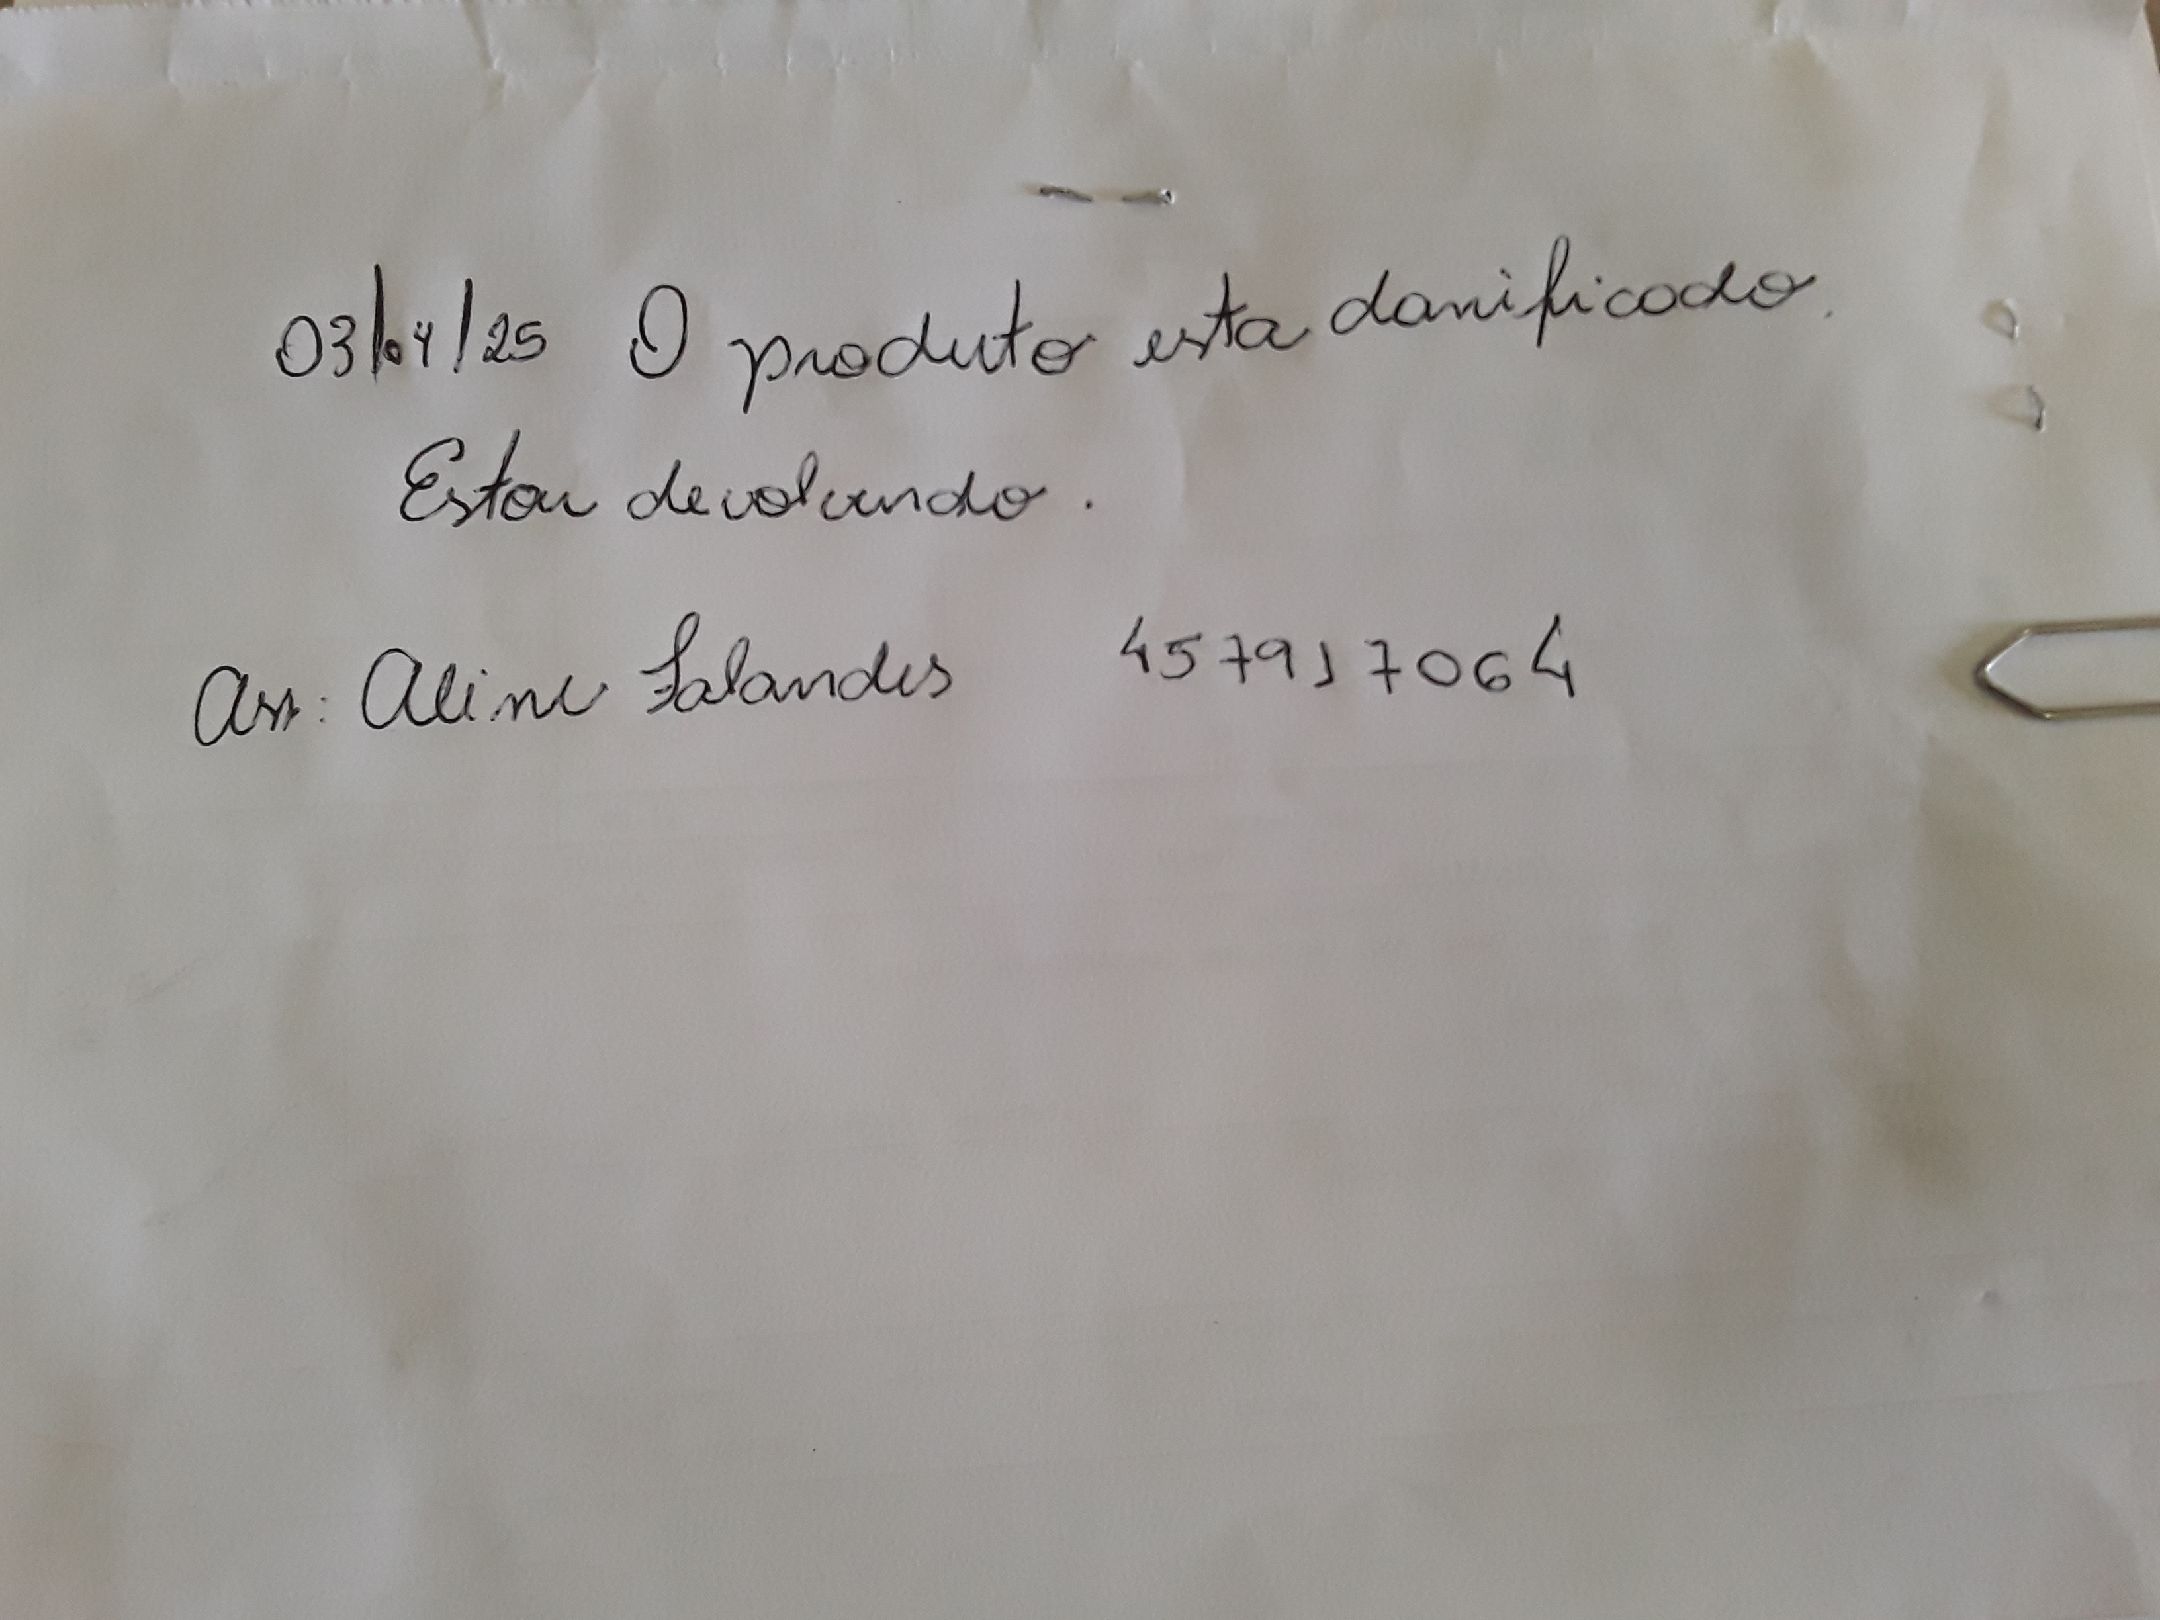 03/04/25 O produto esta danificado.
Estou devolvendo.
Ass: Aline Salandes 457917064